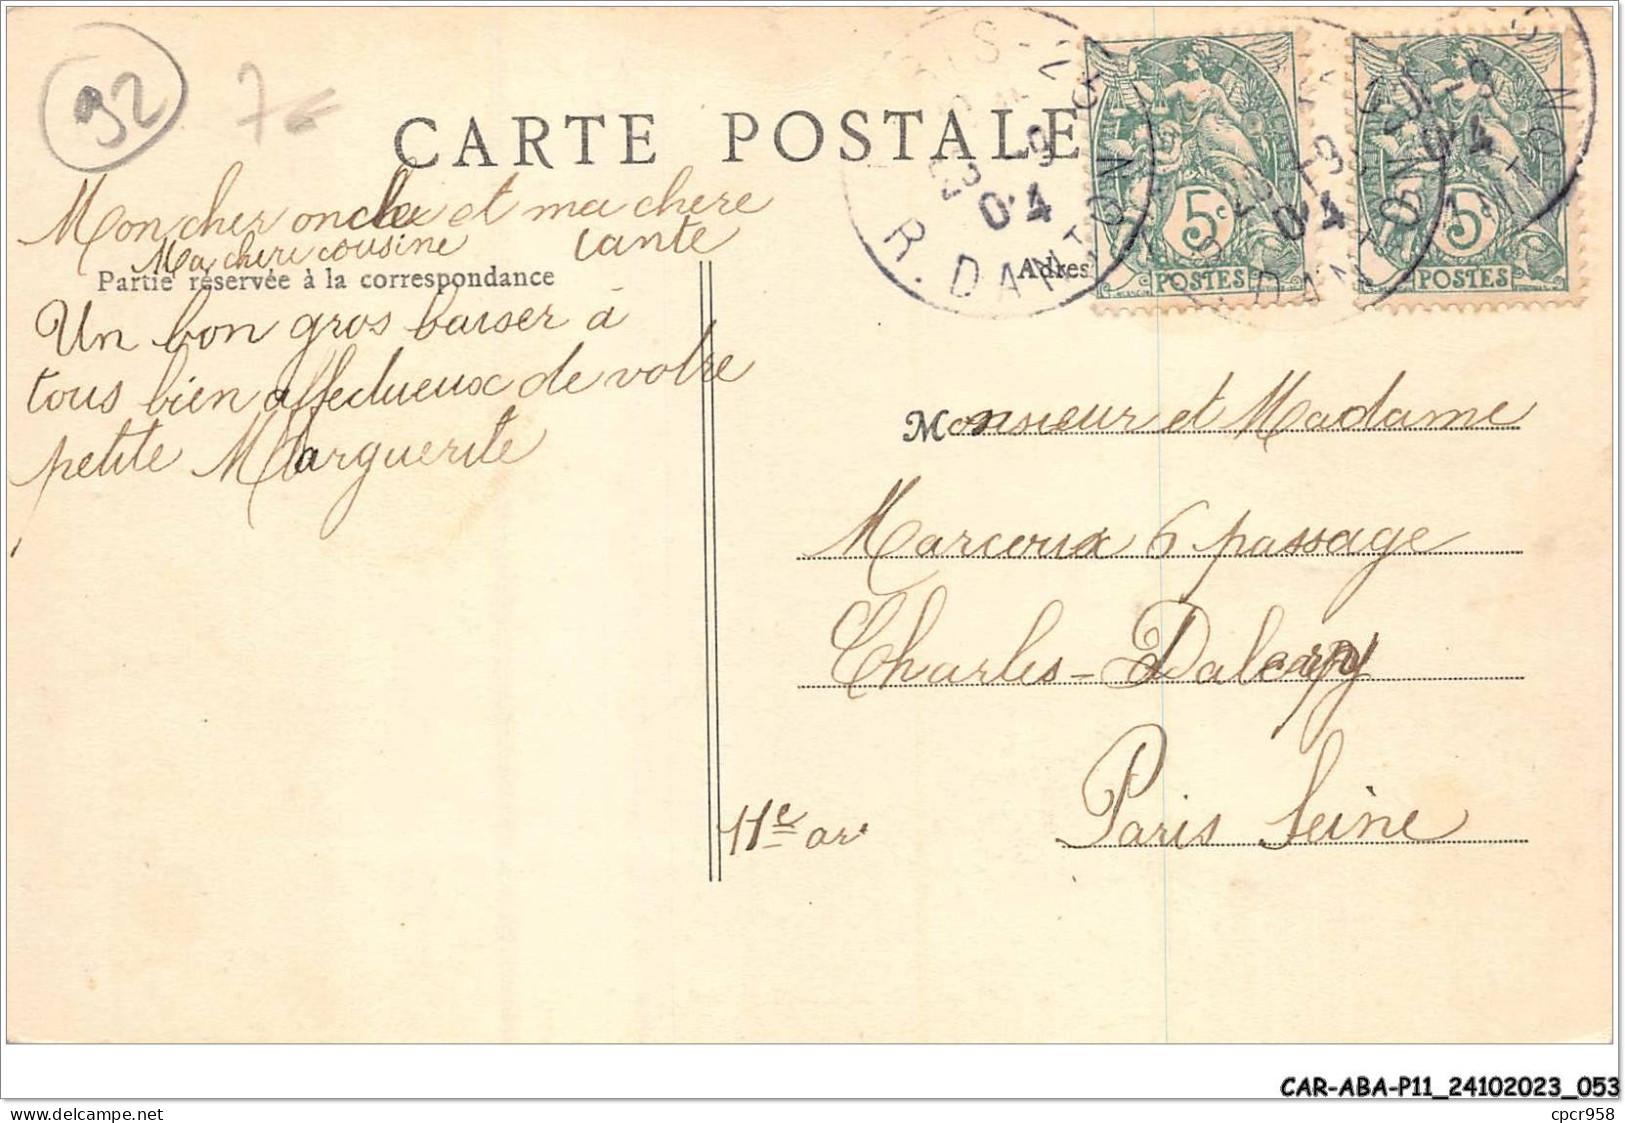 92
7€
CARTE POSTALE
Mon cher oncle et ma chere
tante
Ma chere cousine
Partie réservée à la correspondance
Un bon gros baiser à
tous bien affectueux de votre
petite Marguerite
R. DANTON
23 9
04
5c
POSTES
5c
POSTES
Adres
Monsieur et Madame
Marcoux 6 passage
Charles-Dalery
Paris Seine
11e ar
CAR-ABA-P11_24102023_053
cpcr958